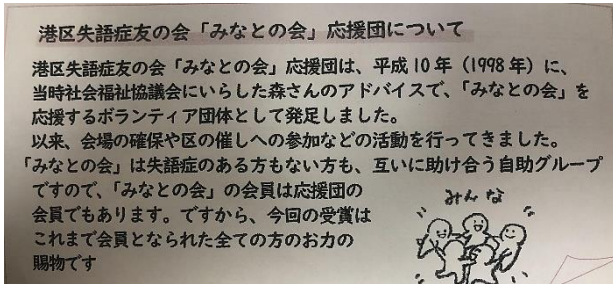 港区失語症友の会「みなとの会」応援団について
港区失語症友の会「みなとの会」応援団は、平成10年（1998年）に、
当時社会福祉協議会にいらした森さんのアドバイスで、「みなとの会」を
応援するボランティア団体として発足しました。
以来、会場の確保や区の催しへの参加などの活動を行ってきました。
「みなとの会」は失語症のある方もない方も、互いに助け合う自助グループ
ですので、「みなとの会」の会員は応援団の
会員でもあります。ですから、今回の受賞は
これまで会員となられた全ての方のお力の
賜物です
みんな